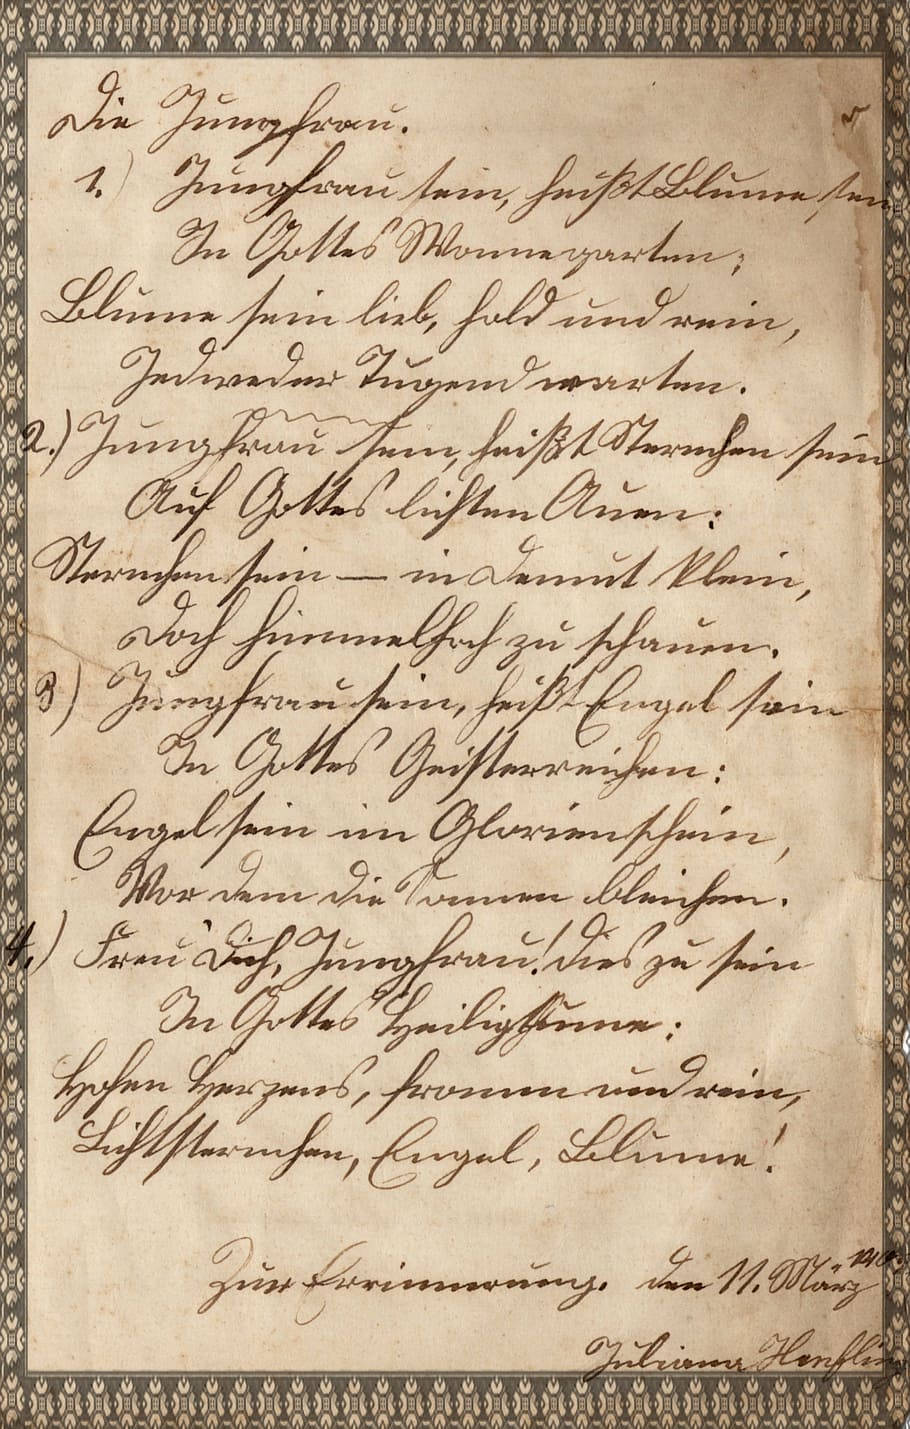 Die Jungfrau.
5
1.) Jungfrau sein, heißt Blume sein
In Gottes Wonnegarten;
Blume sein lieb, hold und rein,
Jedweder Tugend warten.
2.) Jungfrau sein, heißt Sternchen sein
Auf Gottes lichten Auen:
Sternchen sein — in Demut klein,
Doch himmelhoch zu schauen.
3) Jungfrau sein, heißt Engel sein
In Gottes Geisterreichen:
Engel sein im Glorienschein,
Vor dem die Sonnen bleichen.
4.) Freu' Dich, Jungfrau! dies zu sein
In Gottes Heiligthume:
Hohen Herzens, fromm und rein,
Lichtsternchen, Engel, Blume!
Zur Errinnerung. den 11. März
Juliana